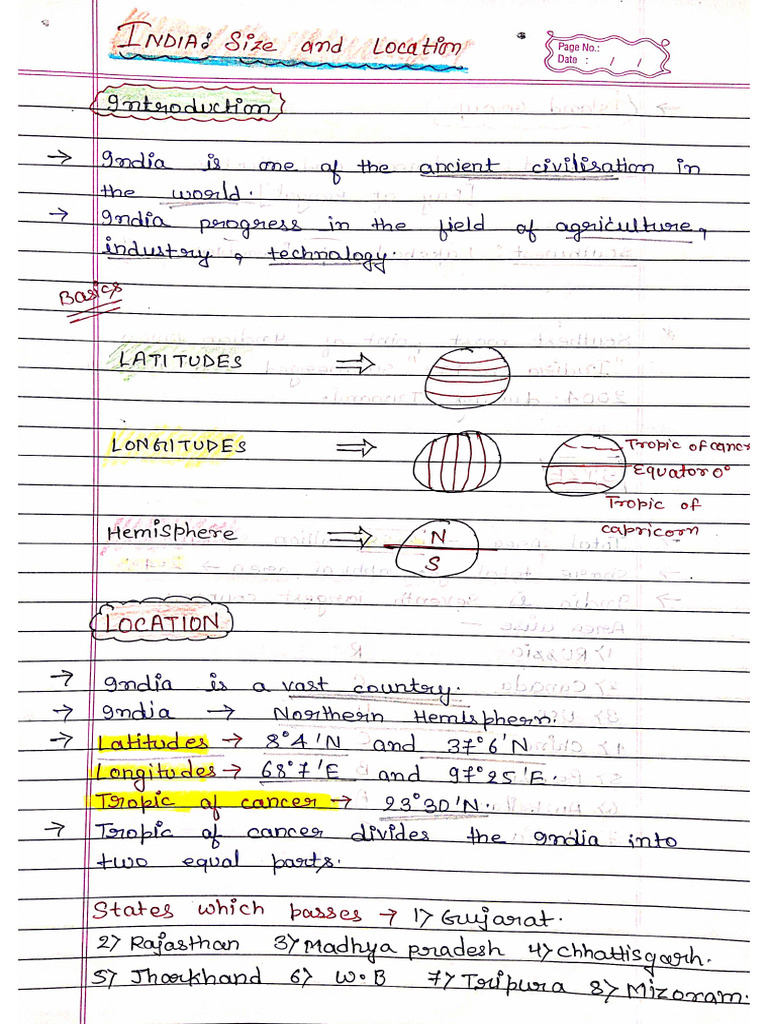 INDIA: Size and Location
Page No.:
Date : / /
Introduction
→ India is one of the ancient civilisation in
the world.
→ India progress in the field of agriculture,
industry, technology.
Basics
LATITUDES ⇒
LONGITUDES ⇒
Tropic of cancer
Equator 0°
Tropic of
capricorn
Hemisphere ⇒ N
S
LOCATION
→ India is a vast country.
→ India → Northern Hemisphern.
→ Latitudes → 8°4'N and 37°6'N
Longitudes → 68°7'E and 97°25'E.
Tropic of cancer → 23°30'N.
→ Tropic of cancer divides the India into
two equal parts.
States which passes → 1) Gujarat.
2) Rajasthan 3) Madhya pradesh 4) Chhattisgarh.
5) Jharkhand 6) W.B 7) Tripura 8) Mizoram.